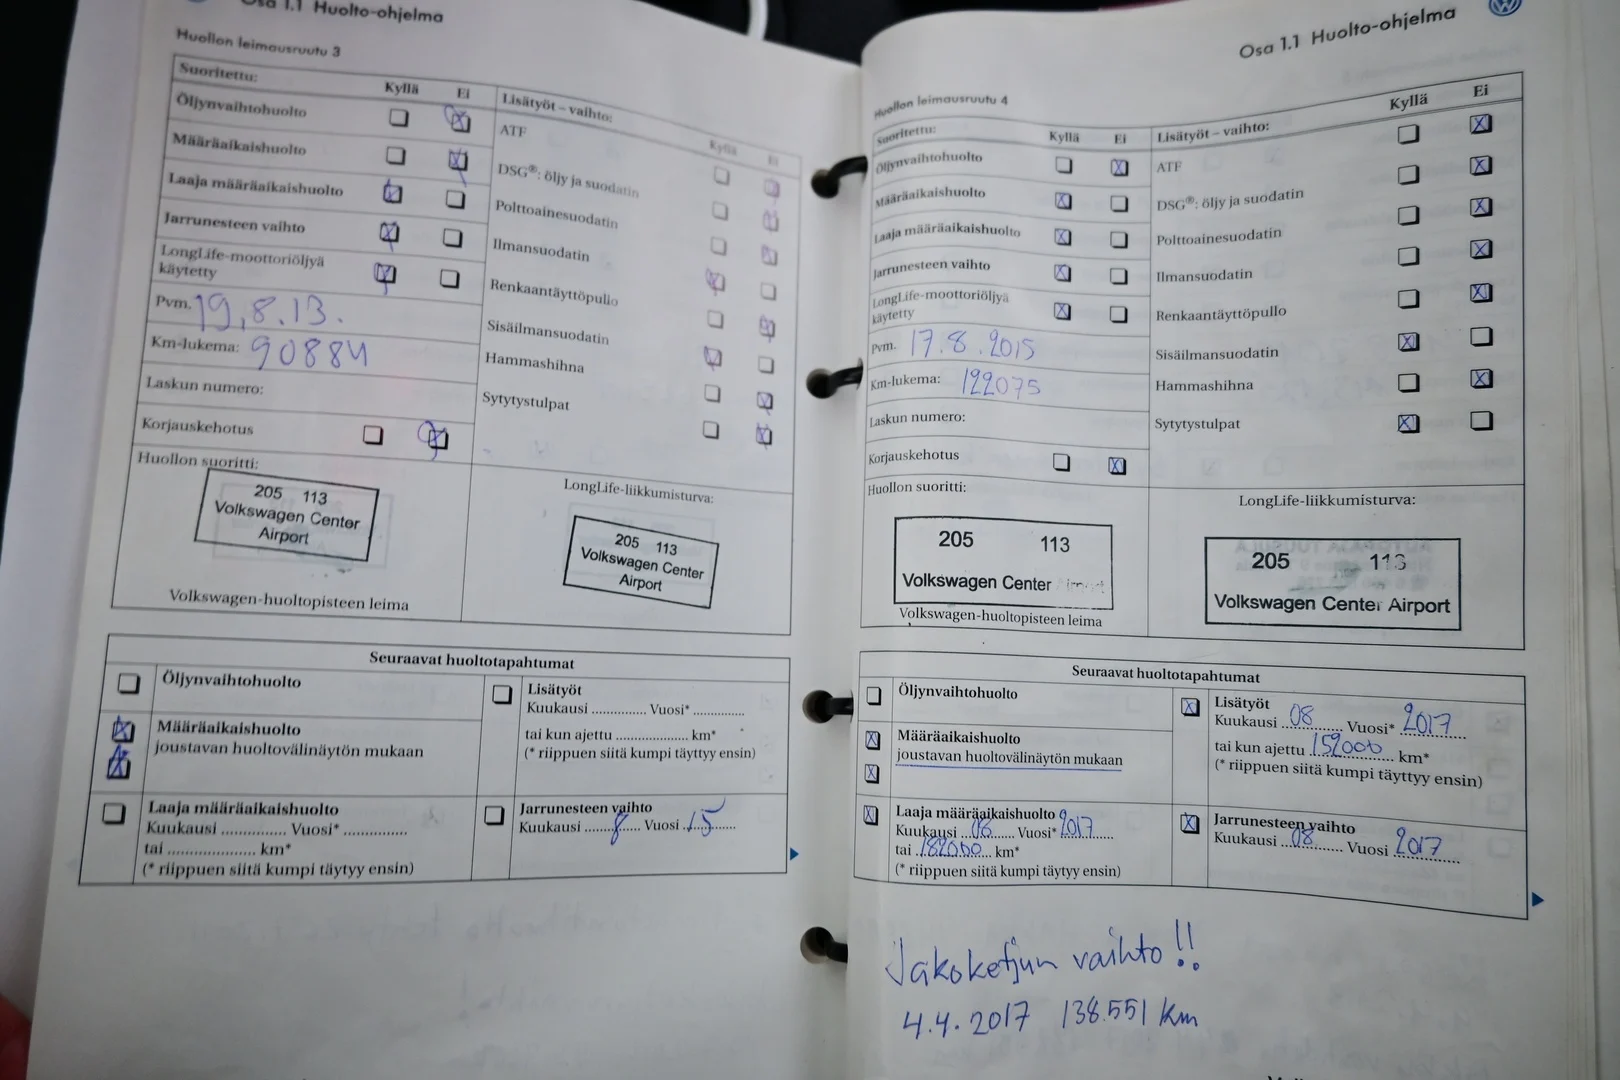 Osa 1.1 Huolto-ohjelma
Huollon leimausruutu 3
Suoritettu:
Kyllä Ei
Öljynvaihtohuolto
Määräaikaishuolto
Laaja määräaikaishuolto
Jarrunesteen vaihto
LongLife-moottoriöljyä
käytetty
Pvm. 19.8.13.
Km-lukema: 90884
Laskun numero:
Korjauskehotus
Huollon suoritti:
205 113
Volkswagen Center
Airport
Volkswagen-huoltopisteen leima
Lisätyöt – vaihto:
Kyllä Ei
ATF
DSG®: öljy ja suodatin
Polttoainesuodatin
Ilmansuodatin
Renkaantäyttöpullo
Sisäilmansuodatin
Hammashihna
Sytytystulpat
LongLife-liikkumisturva:
205 113
Volkswagen Center
Airport
Seuraavat huoltotapahtumat
Öljynvaihtohuolto
Määräaikaishuolto
joustavan huoltovälinäytön mukaan
Laaja määräaikaishuolto
Kuukausi ............... Vuosi* ...............
tai ..................... km*
(* riippuen siitä kumpi täytyy ensin)
Lisätyöt
Kuukausi .............. Vuosi* .............
tai kun ajettu .................. km*
(* riippuen siitä kumpi täyttyy ensin)
Jarrunesteen vaihto
Kuukausi ....8.... Vuosi ..15......
Osa 1.1 Huolto-ohjelma
Huollon leimausruutu 4
Suoritettu:
Kyllä Ei
Öljynvaihtohuolto
Määräaikaishuolto
Laaja määräaikaishuolto
Jarrunesteen vaihto
LongLife-moottoriöljyä
käytetty
Pvm. 17.8.2015
Km-lukema: 122075
Laskun numero:
Korjauskehotus
Huollon suoritti:
205 113
Volkswagen Center Airport
Volkswagen-huoltopisteen leima
Lisätyöt – vaihto:
Kyllä Ei
ATF
DSG®: öljy ja suodatin
Polttoainesuodatin
Ilmansuodatin
Renkaantäyttöpullo
Sisäilmansuodatin
Hammashihna
Sytytystulpat
LongLife-liikkumisturva:
205 113
Volkswagen Center Airport
Seuraavat huoltotapahtumat
Öljynvaihtohuolto
Määräaikaishuolto
joustavan huoltovälinäytön mukaan
Laaja määräaikaishuolto
Kuukausi ..08..... Vuosi* 2017
tai .182000.. km*
(* riippuen siitä kumpi täytyy ensin)
Lisätyöt
Kuukausi ..08........ Vuosi* 2017
tai kun ajettu 152000 ... km*
(* riippuen siitä kumpi täyttyy ensin)
Jarrunesteen vaihto
Kuukausi ..08....... Vuosi 2017
Jakoketjun vaihto!!
4.4.2017 138.551 km